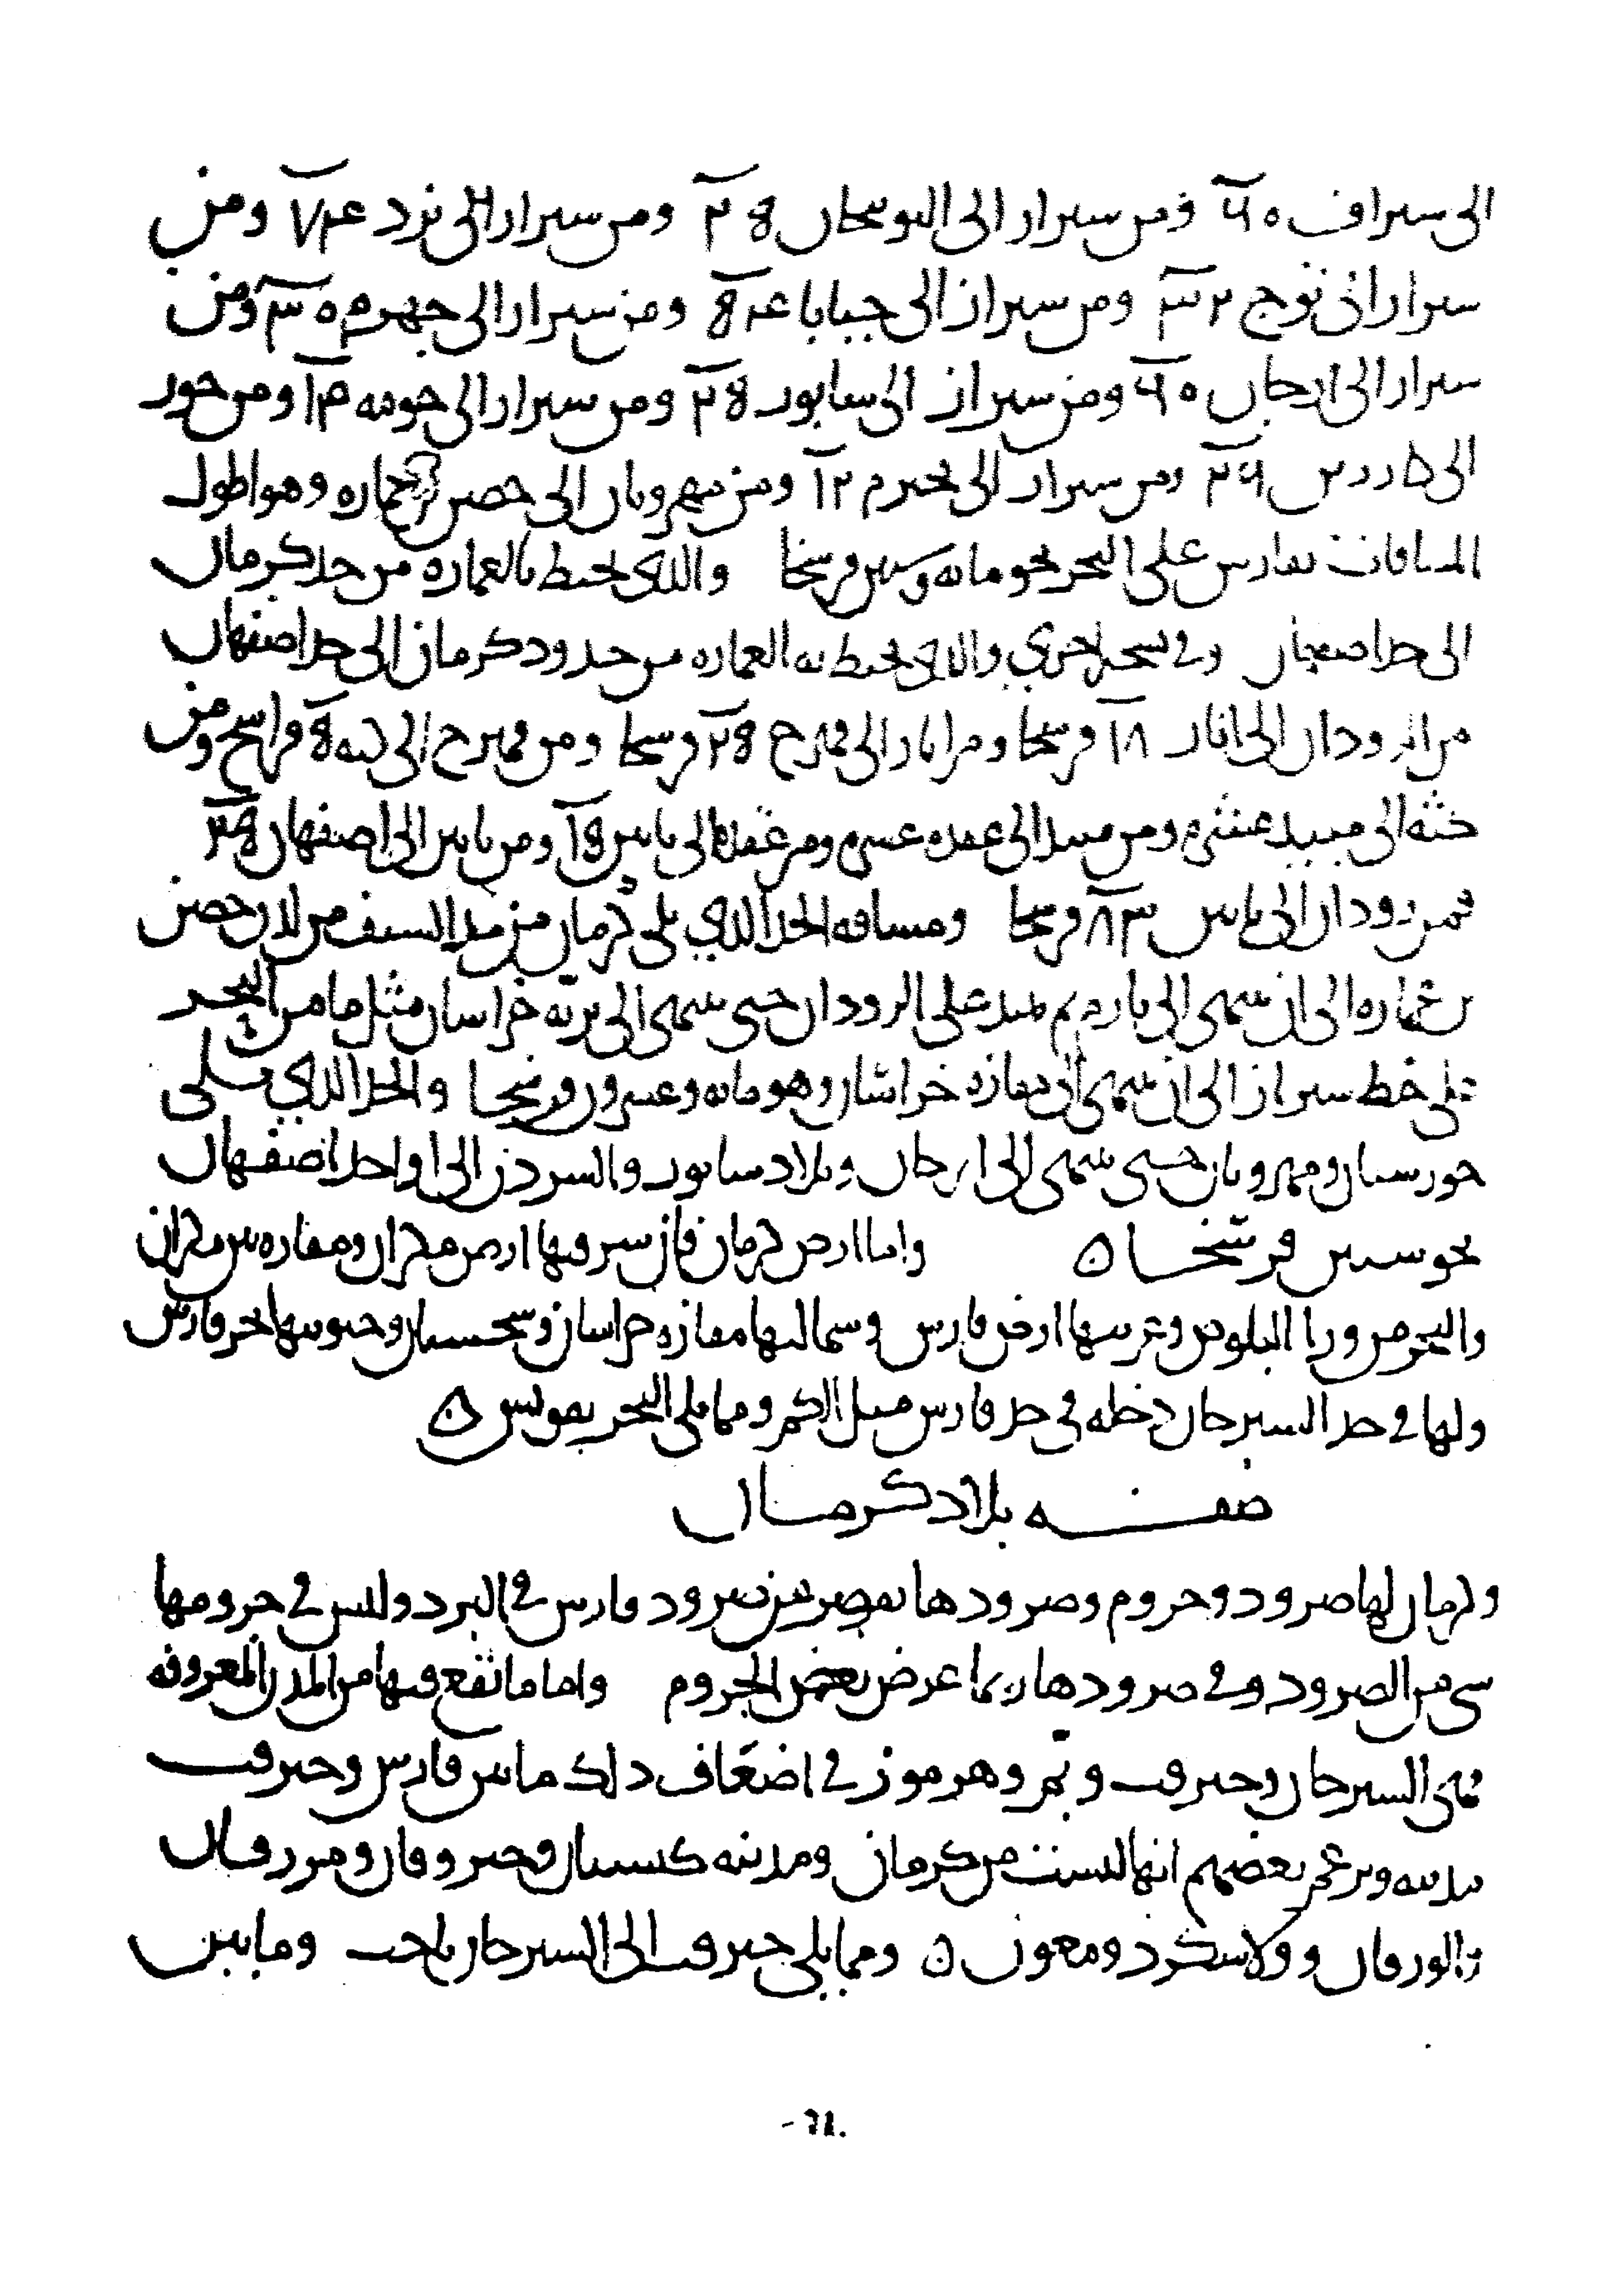 الى سيراف ٦٠ ومن سيراز الى النوبنجان ٢٥ ومن سيراز الى يزد ٧٤ ومن
سيراز الى توج ٣٢ ومن سيراز الى جنابا ٥٤ ومن سيراز الى جهرم ٣٠ ومن
سيراز الى ارجان ٦٠ ومن سيراز الى سابور ٢٥ ومن سيراز الى حومه ومن جور
الى كازرون ومن سيراز الى ١٢ ومن مهروبان الى حصن بن عماره وهو اطول
المسافات بفارس على البحر نحو مائه وستين فرسخا والذي يحيط بالعماره من حد كرمان
الى حد اصفهان وفي نسخه اخرى والذي يحيط به العماره من حدود كرمان الى حد اصفهان
من الرودان الى انار ١٨ فرسخا ومن انار الى فهرج ٢٥ فرسخا ومن فهرج الى كثه ٥ فراسخ ومن
كثه الى ميبد عشرة ومن ميبد الى عقده عشره ومن عقده الى نايين ١٥ ومن نايين الى اصفهان ٤٥
فمن رودان الى نايين ٨٣ فرسخا ومسافه الحد الذي يلي كرمان من السيف من لدن حصن
بن عماره الى ان ينتهى الى تارم ثم يمتد على الرودان حتى ينتهى الى بريه خراسان مثل ما من البحر
على خط سيراز الى ان ينتهى الى مفازه خراسان وهو مائه وعسرون فرسخا والحد الذي يلي
خورستان ومهروبان حتى ينتهى الى ارجان وبلاد سابور والسردن الى اول حد اصفهان
نحو ستين فرسخا ن واما ارض كرمان فان سرقيها ارض مكران ومفازه بين مكران
والبحر من ورا البلوص وغربيها ارض فارس وسماليها مفازه خراسان وسجستان وجنوبيها بحر فارس
ولها في حد السيرجان دخله في حد فارس مثل الكم ومما يلي البحر تقويس ن
صفه بلاد كرمان
وكرمان لها صرود وجروم وصرودها تقصر عن صرود فارس في البرد وليس في جرومها
سي من الصرود وفي صرودها ربما عرض بعض الجروم واما ما تقع فيها من المدن المعروفه
فهى السيرجان وجيرفت وبم وهرموز في اضعاف ذلك ما بين فارس وجيرفت
مدينه ويزعم بعضهم انها ليست من كرمان ومدينه كسستان وجيروقان ومرزقان
والورقان وولاسكرد ومعون ن ومما يلي جيرفت الى السيرجان ناحت وما بين